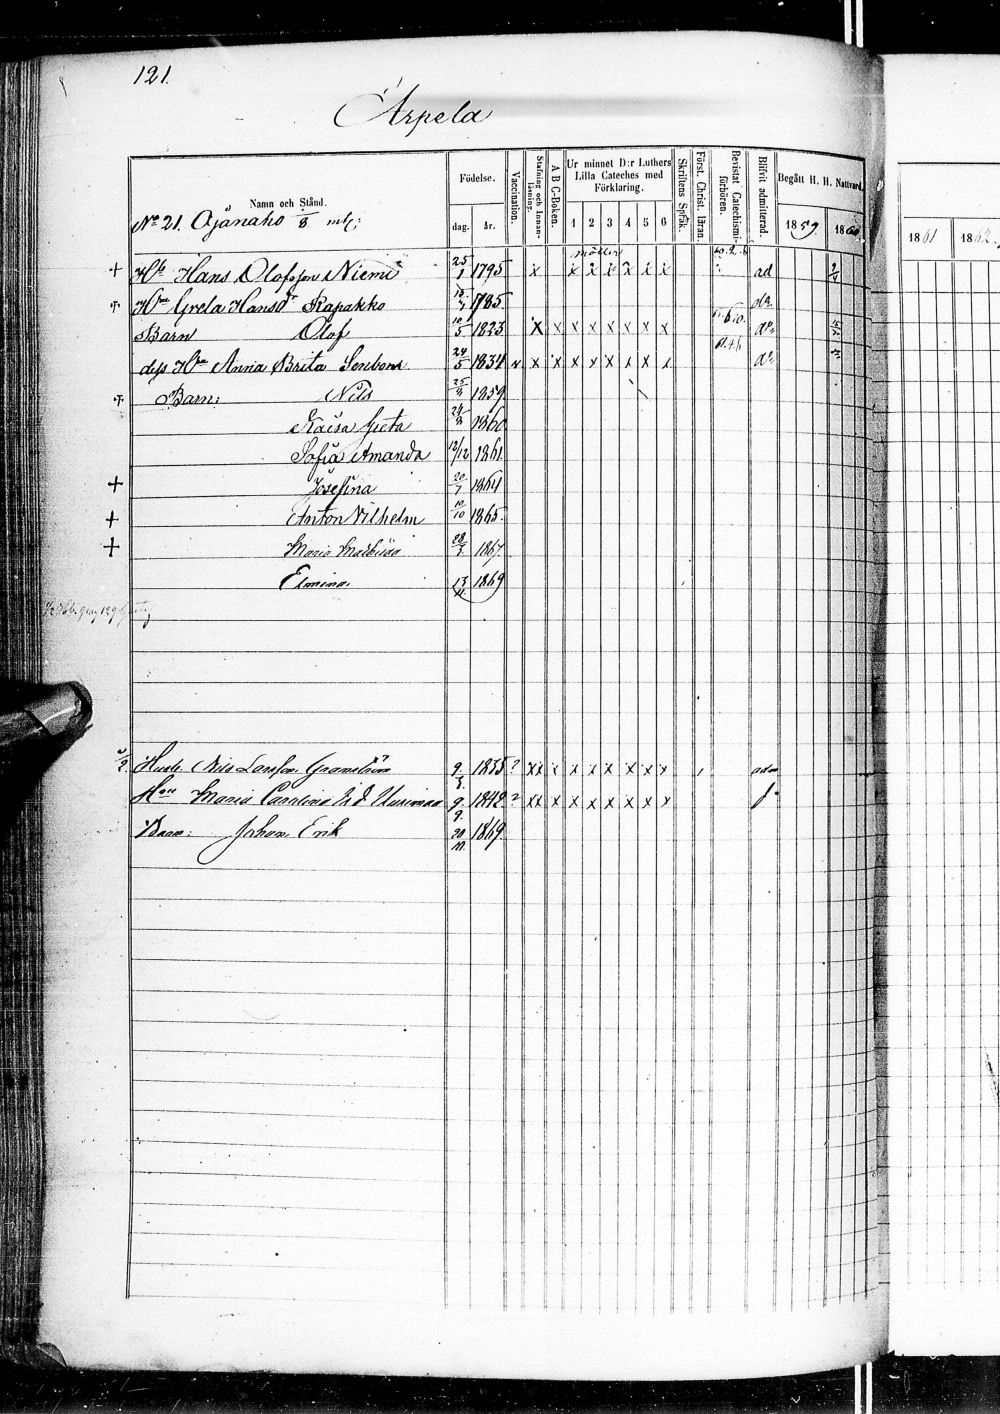 121.
Arpela
Namn och Stånd.
Födelse.
dag. år.
Vaccination.
Stafning och Innanläsning.
A B C-Boken.
Ur minnet D:r Luthers Lilla Cateches med Förklaring.
1 2 3 4 5 6
Skriftens Språk.
Först. Christ. läran.
Bevistat Catechismi-förhören.
Blifvit admitterad.
Begått H. H. Nattvard.
1859 1860
1861 1862
No 21. Ajånaho 1/8 mtl:
+ Hb Hans Olofsson Niemi 25/1 1795 x x x x x x x ad
+ Hru Greta Hansdr Kapakko 1785 do
Barn Olof 10/5 1823 x x x x x x x x do
dess Hru Anna Brita 24/5 1834 v x x x x x x x x do
+ Barn: Nils 1859
Kaisa Greta 1860
Sofia Amanda 12/12 1861
+ Josefina 20/7 1864
+ Anton Vilhelm 10/10 1865
+ Maria 1867
Elmina 13/11 1869
Nils Larsson 1835 ? x x x x x x x x x
Hru Maria 9/9 1842 ? x x x x x x x x x
Barn: Johan Erik 1869